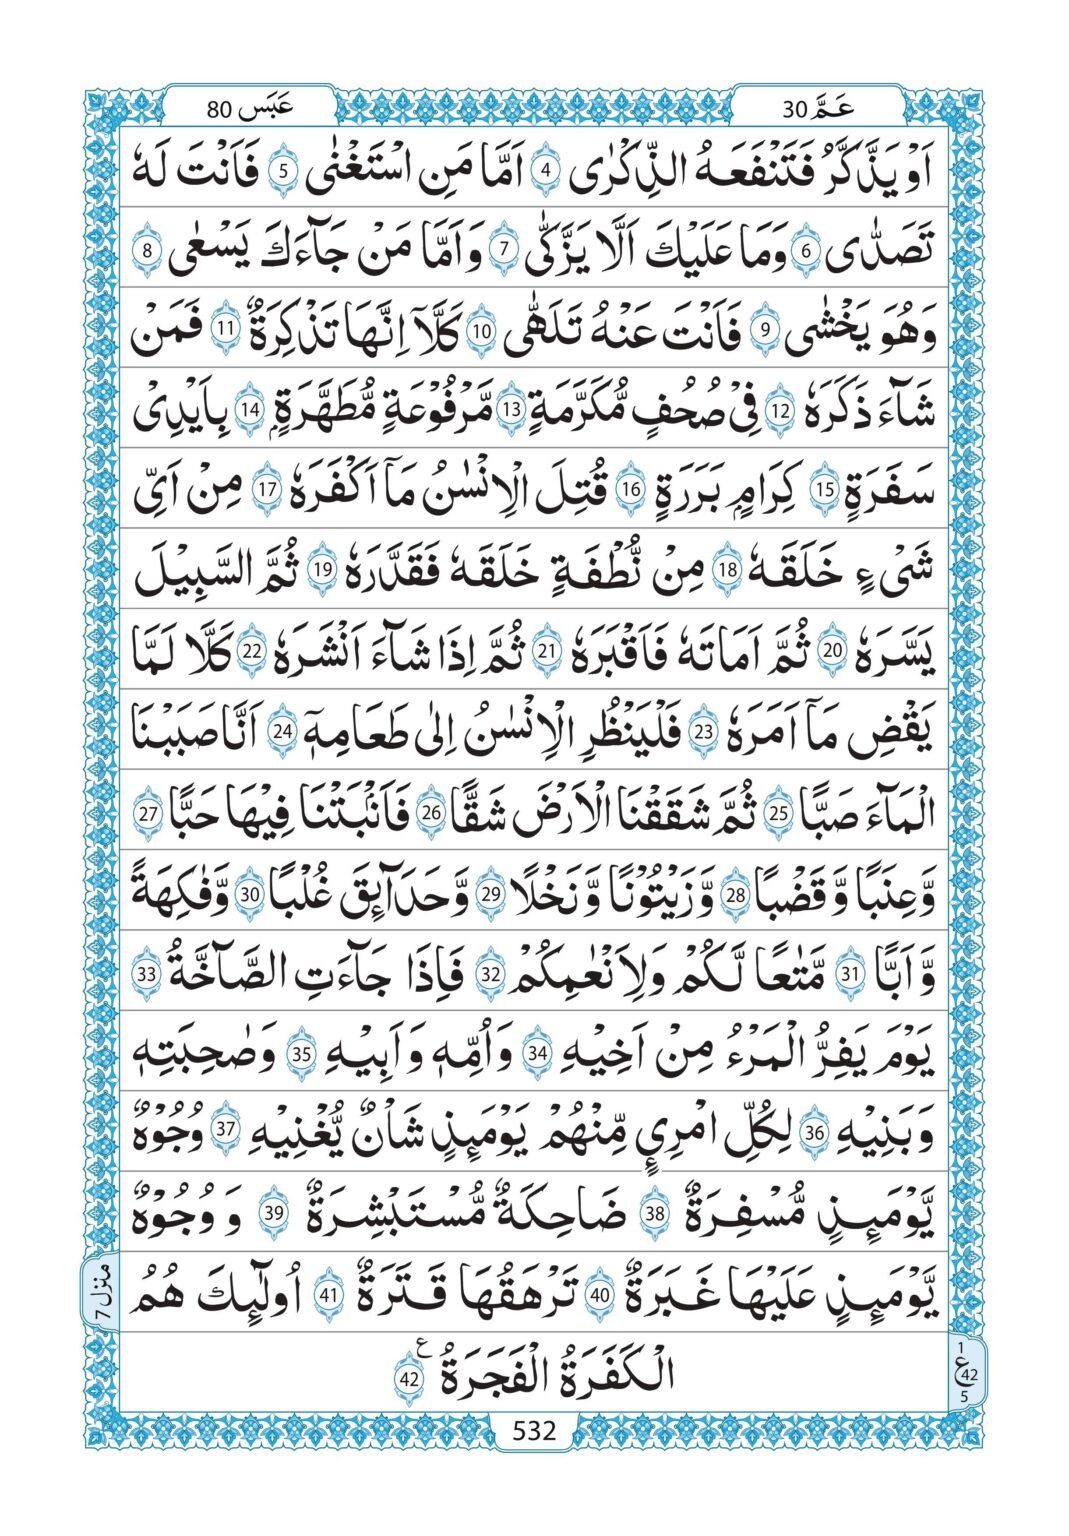 عَمَّ 30
عَبَسَ 80
اَوْ يَذَّكَّرُ فَتَنْفَعَهُ الذِّكْرٰى 4 اَمَّا مَنِ اسْتَغْنٰى 5 فَاَنْتَ لَهٗ
تَصَدّٰى 6 وَمَا عَلَيْكَ اَلَّا يَزَّكّٰى 7 وَاَمَّا مَنْ جَآءَكَ يَسْعٰى 8
وَهُوَ يَخْشٰى 9 فَاَنْتَ عَنْهُ تَلَهّٰى 10 كَلَّآ اِنَّهَا تَذْكِرَةٌ 11 فَمَنْ
شَآءَ ذَكَرَهٗ 12 فِىْ صُحُفٍ مُّكَرَّمَةٍ 13 مَّرْفُوْعَةٍ مُّطَهَّرَةٍۭ 14 بِاَيْدِىْ
سَفَرَةٍ 15 كِرَامٍۭ بَرَرَةٍ 16 قُتِلَ الْاِنْسٰنُ مَآ اَكْفَرَهٗ 17 مِنْ اَىِّ
شَىْءٍ خَلَقَهٗ 18 مِنْ نُّطْفَةٍ خَلَقَهٗ فَقَدَّرَهٗ 19 ثُمَّ السَّبِيْلَ
يَسَّرَهٗ 20 ثُمَّ اَمَاتَهٗ فَاَقْبَرَهٗ 21 ثُمَّ اِذَا شَآءَ اَنْشَرَهٗ 22 كَلَّا لَمَّا
يَقْضِ مَآ اَمَرَهٗ 23 فَلْيَنْظُرِ الْاِنْسٰنُ اِلٰى طَعَامِهٖٓ 24 اَنَّا صَبَبْنَا
الْمَآءَ صَبًّا 25 ثُمَّ شَقَقْنَا الْاَرْضَ شَقًّا 26 فَاَنْۢبَتْنَا فِيْهَا حَبًّا 27
وَّعِنَبًا وَّقَضْبًا 28 وَّزَيْتُوْنًا وَّنَخْلًا 29 وَّحَدَآئِقَ غُلْبًا 30 وَّفَاكِهَةً
وَّاَبًّا 31 مَّتٰعًا لَّكُمْ وَلِاَنْعٰمِكُمْ 32 فَاِذَا جَآءَتِ الصَّآخَّةُ 33
يَوْمَ يَفِرُّ الْمَرْءُ مِنْ اَخِيْهِ 34 وَاُمِّهٖ وَاَبِيْهِ 35 وَصٰحِبَتِهٖ
وَبَنِيْهِ 36 لِكُلِّ امْرِئٍ مِّنْهُمْ يَوْمَئِذٍ شَاْنٌ يُّغْنِيْهِ 37 وُجُوْهٌ
يَّوْمَئِذٍ مُّسْفِرَةٌ 38 ضَاحِكَةٌ مُّسْتَبْشِرَةٌ 39 وَوُجُوْهٌ
يَّوْمَئِذٍ عَلَيْهَا غَبَرَةٌ 40 تَرْهَقُهَا قَتَرَةٌ 41 اُولٰٓئِكَ هُمُ
الْكَفَرَةُ الْفَجَرَةُ ع 42
منزل 7
1
ع 42
5
532